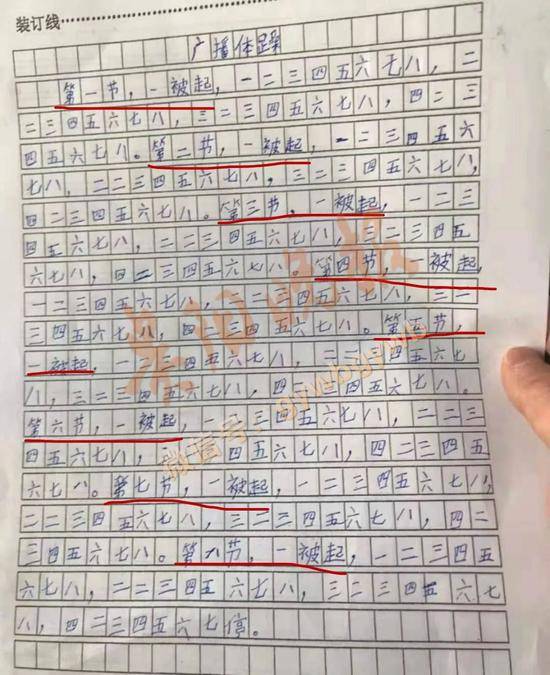 装订线
广播体操
第一节，一被起，一二三四五六七八，二
二三四五六七八，三二三四五六七八，四二三
四五六七八。第二节，一被起，一二三四五六
七八，二二三四五六七八，三二三四五六七八，
四二三四五六七八。第三节，一被起，一二三
四五六七八，二二三四五六七八，三二三四五
六七八，四二三四五六七八。第四节，一被起，
一二三四五六七八，二二三四五六七八，三二
三四五六七八，四二三四五六七八。第五节，
一被起，一二三四五六七八，二二三四五六七
八，三二三四五六七八，四二三四五六七八。
第六节，一被起，一二三四五六七八，二二三
四五六七八，三二三四五六七八，四二三四五
六七八。第七节，一被起，一二三四五六七八，
二二三四五六七八，三二三四五六七八，四二
三四五六七八。第八节，一被起，一二三四五
六七八，二二三四五六七八，三二三四五六七
八，四二三四五六七停。
贵阳晚报
微信号：gywbgywb